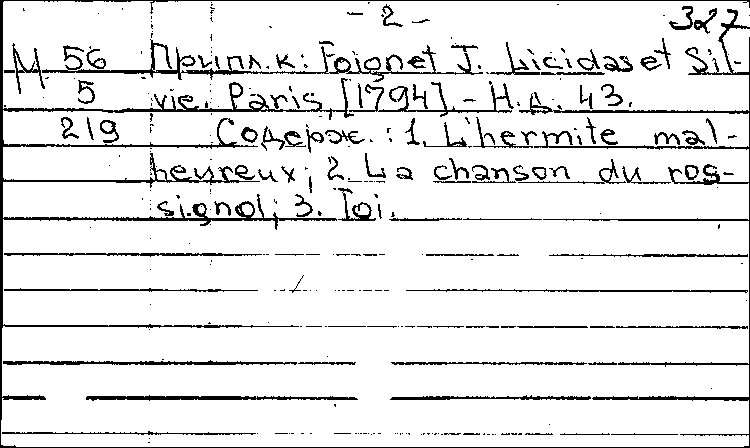 - 2 -
327
М 56 Припл. к: Foignet J. Licidas et Sil-
5 vie. Paris, [1794]. - Н.д. 43.
219 Содерж.: 1. L'hermite mal-
heureux; 2. La chanson du ros-
signol; 3. Toi.